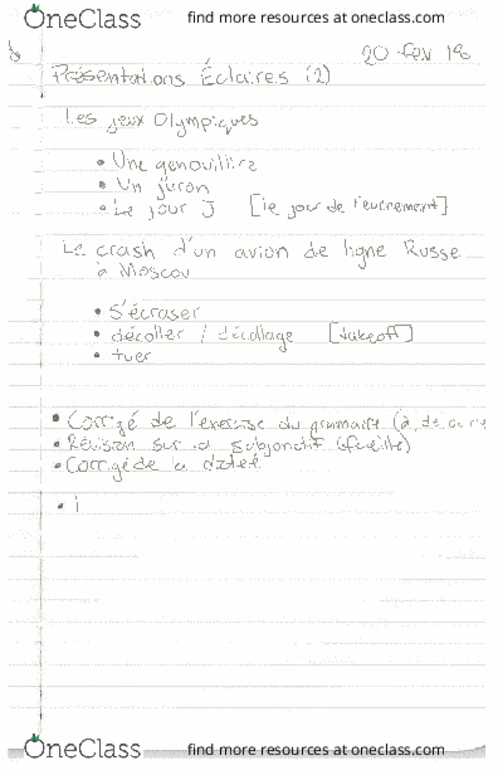 OneClass find more resources at oneclass.com
20 fev 18
Présentations Éclaires (2)
Les jeux Olympiques
• Une genouillière
• Un juron
• Le jour J [le jour de l'evenement]
Le crash d'un avion de ligne Russe
à Moscou
• S'écraser
• décoller / décollage [takeoff]
• tuer
• Corrigé de l'exercise du grammaire (à, de,
• Révision sur subjonctif (feuille)
• Corrigé de la dicteé
• i
OneClass find more resources at oneclass.com